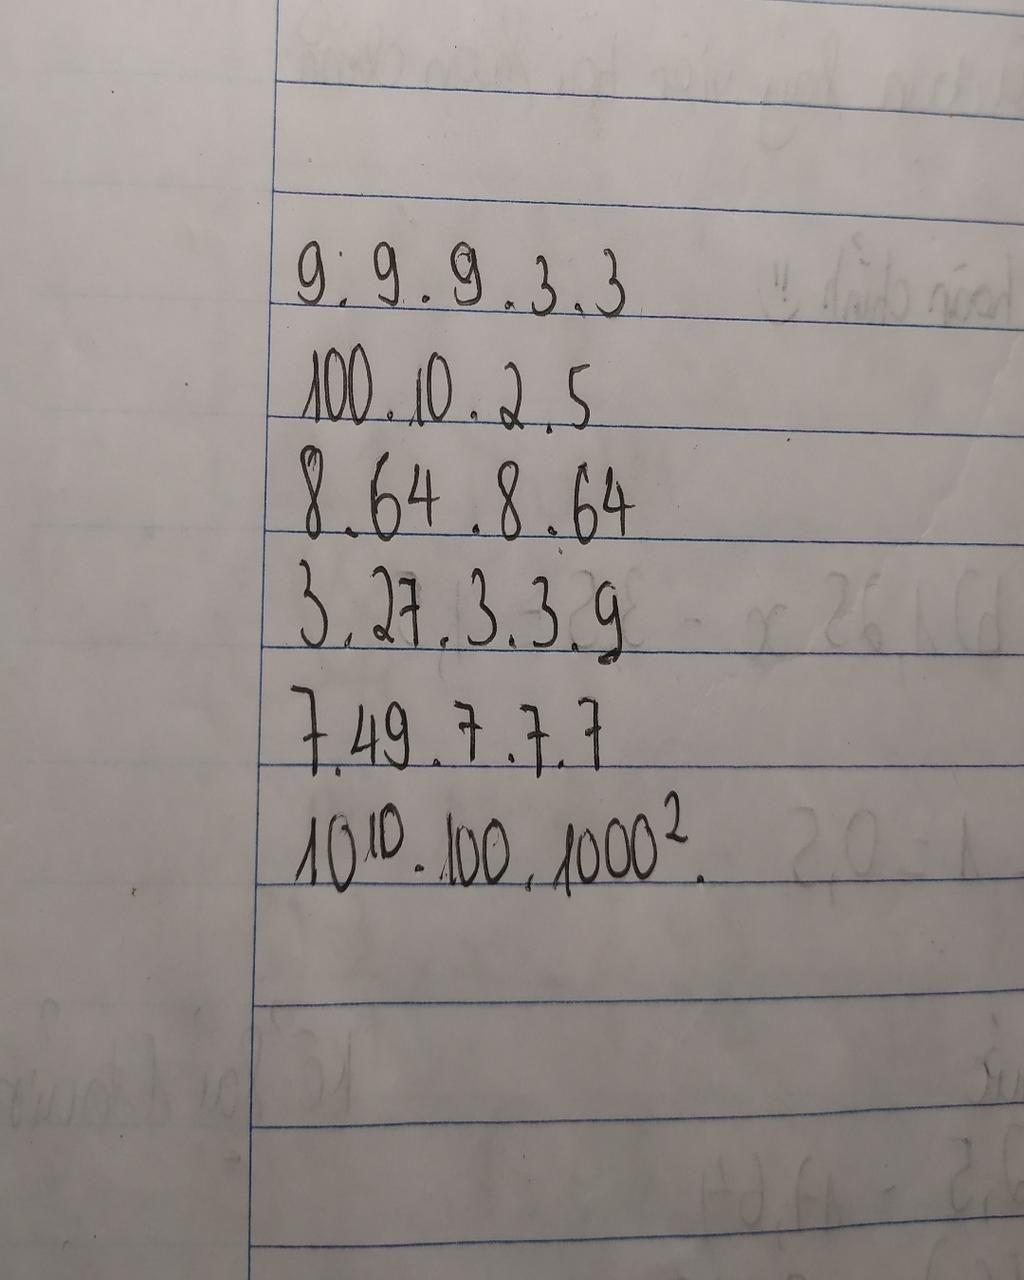 9.9.9.3.3
100.10.2.5
8.64.8.64
3.27.3.3.9
7.49.7.7.7
10¹⁰.100.1000².